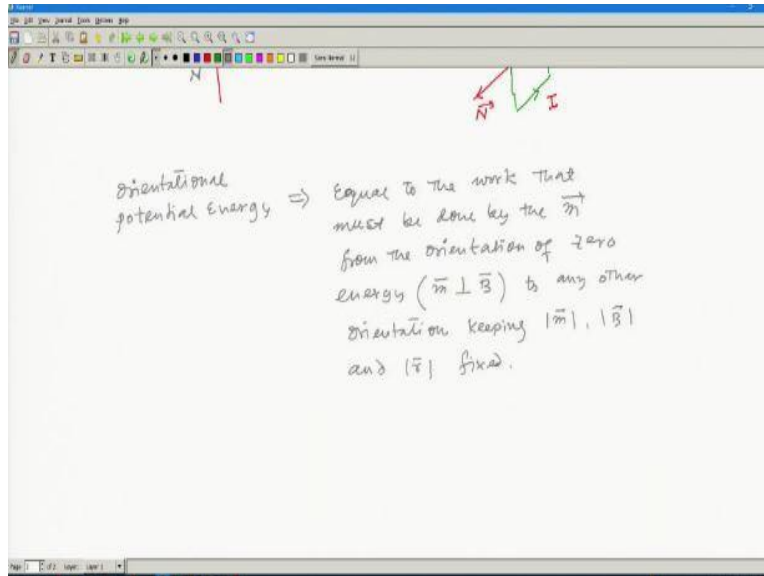 N
N⃗
I
Orientational
potential Energy ⇒
Equal to the work that
must be done by the m⃗
from the orientation of zero
energy (m̄ ⊥ B̄) to any other
orientation keeping |m̄|, |B̄|
and |r̄| fixed.